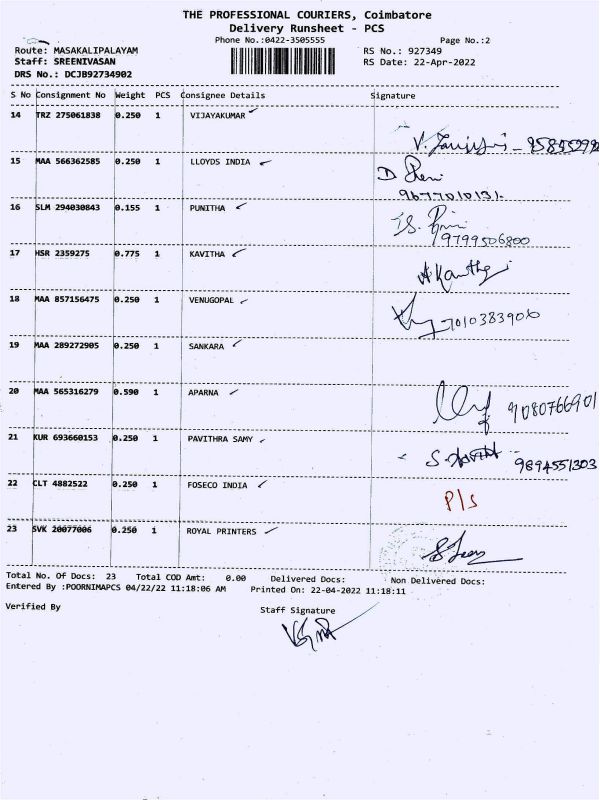 THE PROFESSIONAL COURIERS, Coimbatore
Delivery Runsheet - PCS
Phone No.:0422-3505555 Page No.:2
Route: MASAKALIPALAYAM RS No.: 927349
Staff: SREENIVASAN RS Date: 22-Apr-2022
DRS No.: DCJB92734902
S No Consignment No Weight PCS Consignee Details Signature
14 TRZ 275061838 0.250 1 VIJAYAKUMAR
15 MAA 566362585 0.250 1 LLOYDS INDIA
9677010131
16 SLM 294030843 0.155 1 PUNITHA
9799506800
17 HSR 2359275 0.775 1 KAVITHA
18 MAA 857156475 0.250 1 VENUGOPAL
7010383906
19 MAA 289272905 0.250 1 SANKARA
20 MAA 565316279 0.590 1 APARNA
9080766901
21 KUR 693660153 0.250 1 PAVITHRA SAMY
9894551303
22 CLT 4882522 0.250 1 FOSECO INDIA
P/S
23 SVK 20077006 0.250 1 ROYAL PRINTERS
Total No. Of Docs: 23 Total COD Amt: 0.00 Delivered Docs: Non Delivered Docs:
Entered By :POORNIMAPCS 04/22/22 11:18:06 AM Printed On: 22-04-2022 11:18:11
Verified By Staff Signature